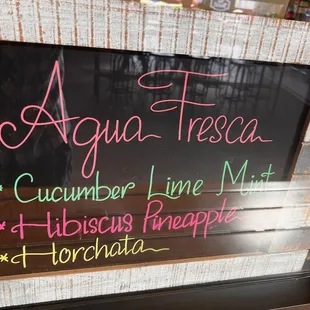 Agua Fresca
* Cucumber Lime Mint
* Hibiscus Pineapple
* Horchata